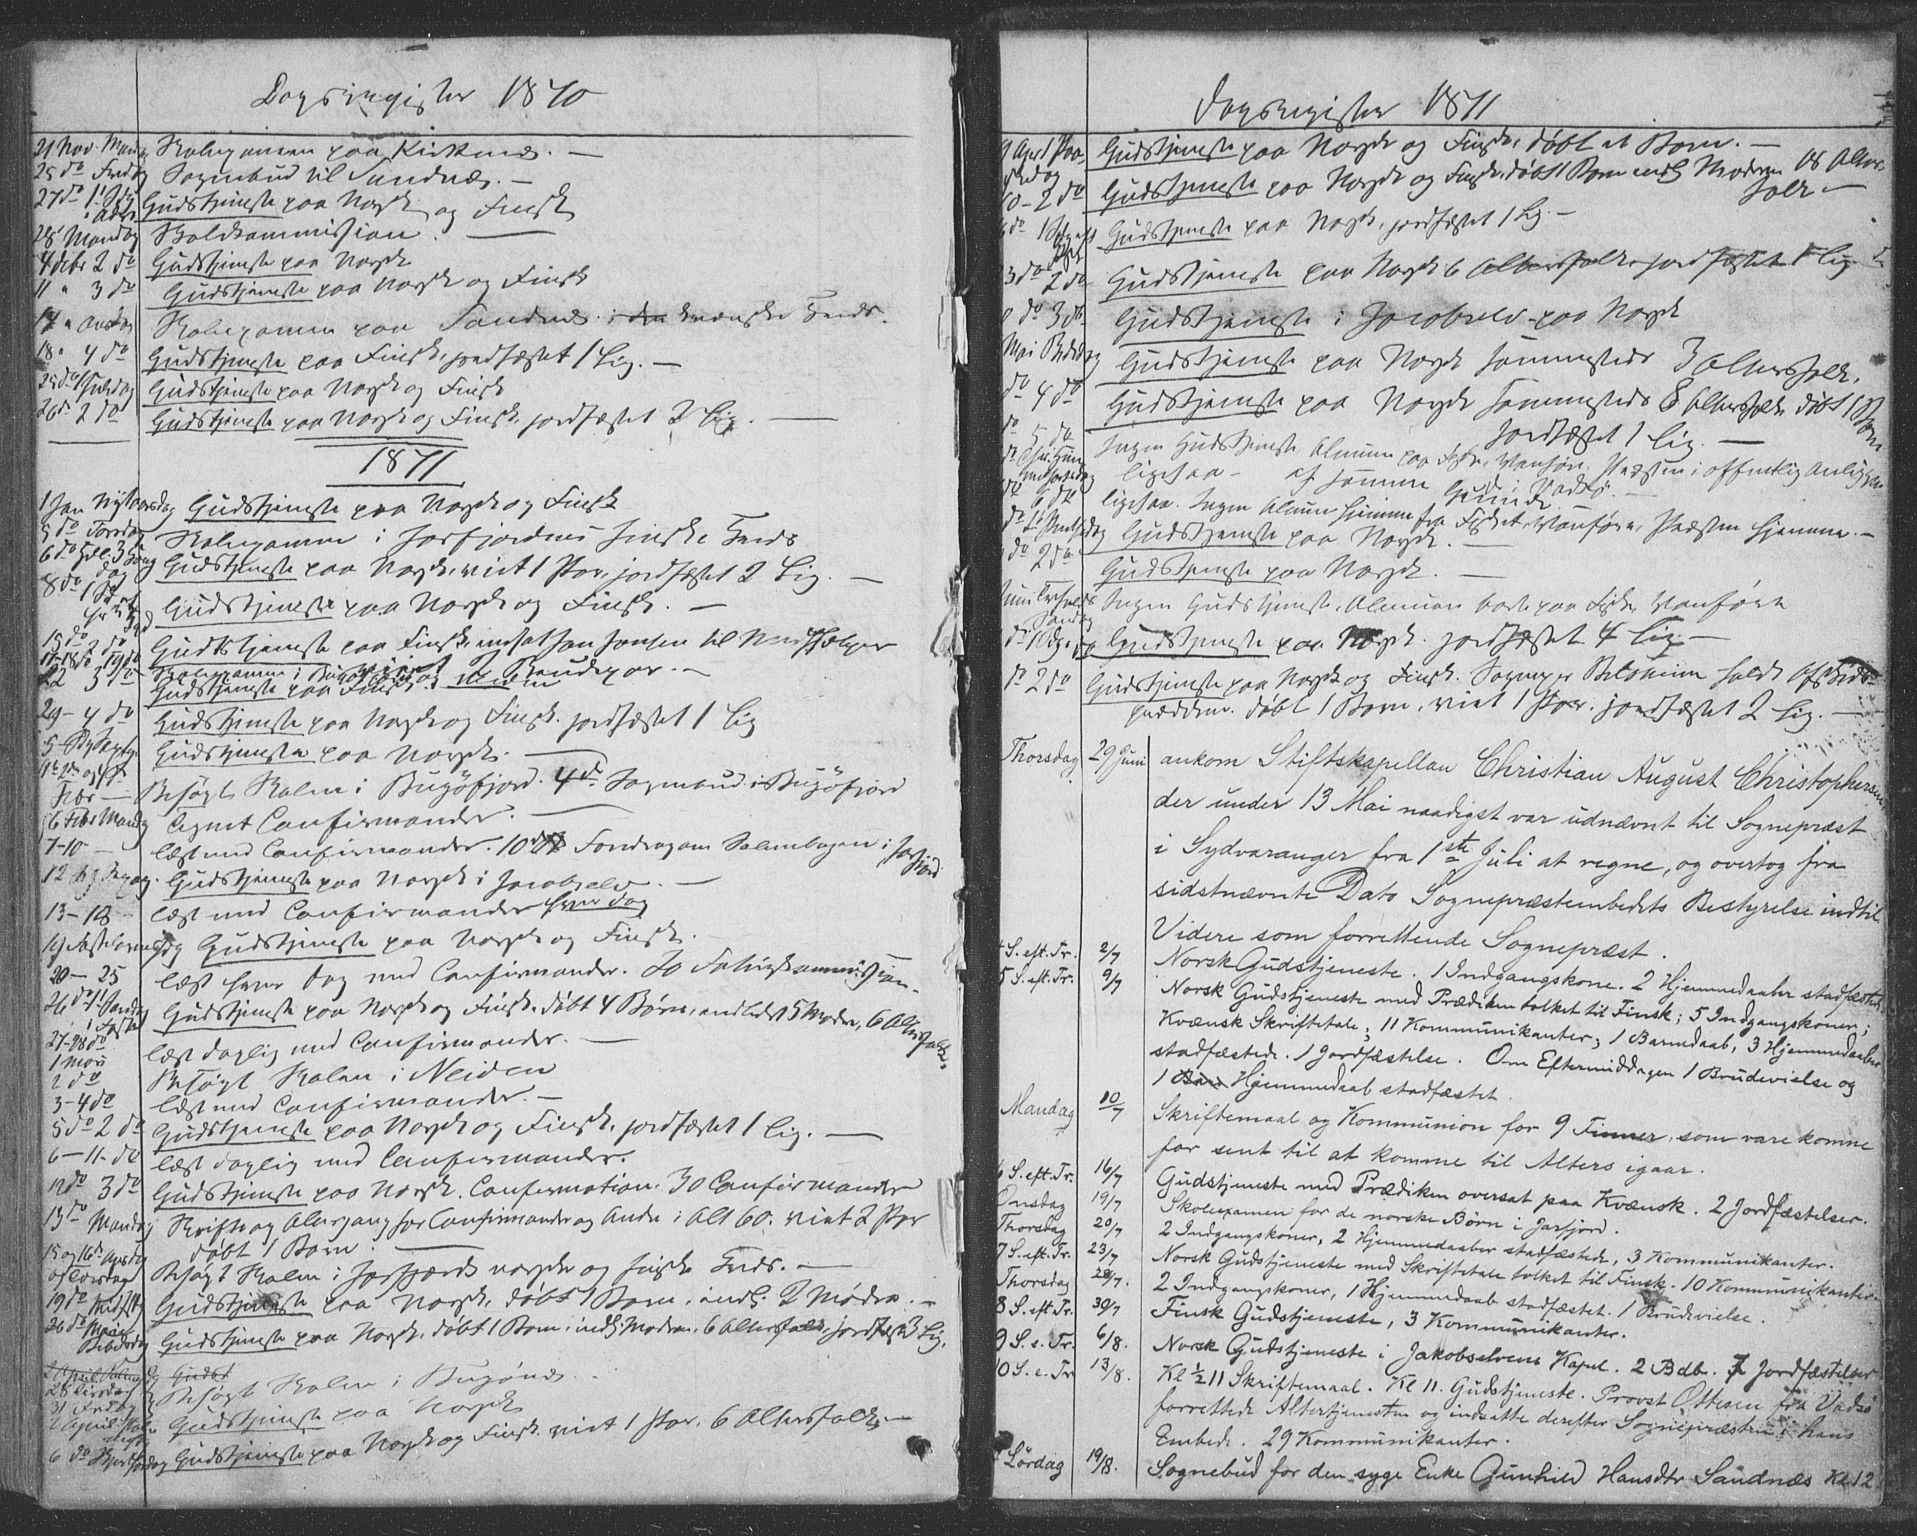 Dagsregister 1870
21 Nov. Mandag Skoleexamen paa Kirkenæs. —
25 do Fredag Sognebud til Sandnæs. —
27 do 1 S. i Adv. Gudstjeneste paa Norsk og Finsk
28 Mandag Skolekommission. —
4 Debr 2 do Gudstjeneste paa Norsk
11 " 3 do Gudstjeneste paa Norsk og Finsk
Skoleexamen paa Sandnæs i den kvænske Kreds.
18 " 4 do Gudstjeneste paa Finsk, jordfæstet 1 Lig. —
25 do Juledag Gudstjeneste paa Norsk og Finsk
26 do 2 do Gudstjeneste paa Norsk og Finsk, jordfæstet 2 Lig. —
1871
1 Jan Nytaarsdag Gudstjeneste paa Norsk og Finsk
5 do Torsdag Skoleexamen i Jarfjordens finske Kreds
6 do Hell. 3 Kong. dag Gudstjeneste paa Norsk, viet 1 Par, jordfæstet 2 Lig. —
8 do 1 S. Gudstjeneste paa Norsk og Finsk. —
15 do 2 do Gudstjeneste paa Finsk, indsat Jan Jonsen til Medhjælper
17-18 do Skoleexamen i
22 3 do Gudstjeneste paa Finsk, Brudepar. —
29 - 4 do Gudstjeneste paa Norsk og Finsk. jordfæstet 1 Lig
5 Gudstjeneste paa Norsk. —
Febr — Besøgt Skolen i Bugöfjord. 4 do Sognebud i Bugöfjord
6 Febr Mandag Confirmander. —
7-10 — læst med Confirmander. 10 do Foredrag om Salmebogen i Jarfjord
12 Gudstjeneste paa Norsk i Jacobselv. —
13-18 læst med Confirmander hver dag
19 Fastelavnsdag Gudstjeneste paa Norsk og Finsk. —
20 — 25 læst hver Dag med Confirmander.
26 do 1 Søndag i Faste Gudstjeneste paa Norsk og Finsk, døbt 4 Børn, indledet 5 Mødre, 6 Altersfolk.
27-28 do læst daglig med Confirmander. —
1 Mars
2 do Besøgt Skolen i Neiden
3-4 do læst med Confirmander. —
5 do 2 do Gudstjeneste paa Norsk og Finsk, jordfæstet 1 Lig. —
6 — 11 do læst daglig med Confirmander.
12 do 3 do Gudstjeneste paa Norsk. Confirmation. 30 Confirmander
13 do Mandag Skrifte og Altergang for Confirmander og Andre i Alt 60. viet 2 Par
døbt 1 Barn. —
15 og 16 do Onsdag Besøgt Skolen i Jarfjords norske og finske Kreds. —
19 do Midfaste Gudstjeneste paa Norsk, døbt 1 Barn, indl. 2 Mødre. —
26 do Maria Bebud. Gudstjeneste paa Norsk, døbt 1 Barn, indl. Moder, 6 Altersfolk, jordfæstet 3 Lig.
2 April Gudst
28 Besøgt Skolen i Bugönæs.
31 Fredag
2 April Gudstjeneste paa Norsk
6 do Skjærtorsdag Gudstjeneste paa Norsk og Finsk. viet 1 Par. 6 Altersfolk. —
Dagsregister 1871
9 April Paaskedag Gudstjeneste paa Norsk og Finsk, døbt et Barn. —
10 - 2 do Gudstjeneste paa Norsk og Finsk, døbt 1 Barn indl. Moderen 18 Altersfolk —
Gudstjeneste paa Norsk, jordfæstet 1 Lig. —
3 do 2 do Gudstjeneste paa Norsk 6 Altersfolk, jordfæstet 1 Lig
do 3 do Gudstjeneste i Jacobselv paa Norsk
Mai Bededag Gudstjeneste paa Norsk sammesteds 3 Altersfolk.
do 4 do Gudstjeneste paa Norsk sammesteds 8 Altersfolk, døbt 1 Barn
jordfæstet 1 Lig. —
do 5 do Ingen Gudstjeneste. Almuen paa Fiske, Præsten i offentlig Anliggende
ligesaa — af samme Grund. —
do 6 do ligesaa. Ingen Almue hjemme fra Fisket, Præsten hjemme. —
do 1 Pintsedag Gudstjeneste paa Norsk. —
do 2 do Gudstjeneste paa Norsk. —
Ingen Gudstjeneste. Almuen borte paa Fiske
Gudstjeneste paa Norsk. jordfæstet 4 Lig —
do 2 do Gudstjeneste paa Norsk og Finsk. Sognepr. holdt Afskeds-
prædiken. døbt 1 Barn, viet 1 Par. jordfæstet 2 Lig. —
Thorsdag 29 Juni ankom Stiftskapellan Christian August Christophersen,
der under 13 Mai naadigst var udnævnt til Sognepræst
i Sydvaranger fra 1ste Juli at regne, og overtog fra
sidstnævnte Dato Sognepræstembedets Bestyrelse indtil
Videre som forrettende Sognepræst.
4 S. eft. Tr. 2/7 Norsk Gudstjeneste. 1 Indgangskone. 2 Hjemmedaaber stadfæstet.
5 S. eft. Tr. 9/7 Norsk Gudstjeneste med Prædiken tolket til Finsk; 5 Indgangskoner;
Kvænsk Skriftetale; 11 Kommunikanter; 1 Barnedaab, 3 Hjemmedaaber
stadfæstede. 1 Jordfæstelse. Om Eftermiddagen 1 Brudevielse og
1 Barn Hjemmedaab stadfæstet.
Mandag 10/7 Skriftemaal og Kommunion for 9 Finner, som vare komne
for sent til at komme til Alters igaar.
6 S. eft. Tr. 16/7 Gudstjeneste med Prædiken oversat paa Kvænsk. 2 Jordfæstelser.
Onsdag 19/7 Skoleexamen for de norske Børn i Jarfjord.
Thorsdag 20/7 2 Indgangskoner, 2 Hjemmedaaber stadfæstede, 3 Kommunikanter.
7 S. eft. Tr. 23/7 Norsk Gudstjeneste med Skriftetale tolket til Finsk. 10 Kommunikanter.
Thorsdag 28/7. 2 Indgangskoner, 1 Hjemmedaab stadfæstet. 1 Brudevielse.
8 S. eft. Tr. 30/7 Finsk Gudstjeneste, 3 Kommunikanter.
9 S. e. Tr. 6/8. Norsk Gudstjeneste i Jakobselvens Kapel. 2 Bdb. 7 Jordfæstelser
10 S. e. Tr 13/8. Kl ½ 11 Skriftemaal. Kl 11. Gudstjeneste. Provst Ottesen fra Vadsø
forrettede Altertjenesten og indsatte derefter Sognepræsten i hans
Embede. 29 Kommunikanter.
Lørdag 19/8. Sognebud for den syge Enke Gunhild Hansdtr Sandnæs Kl 12